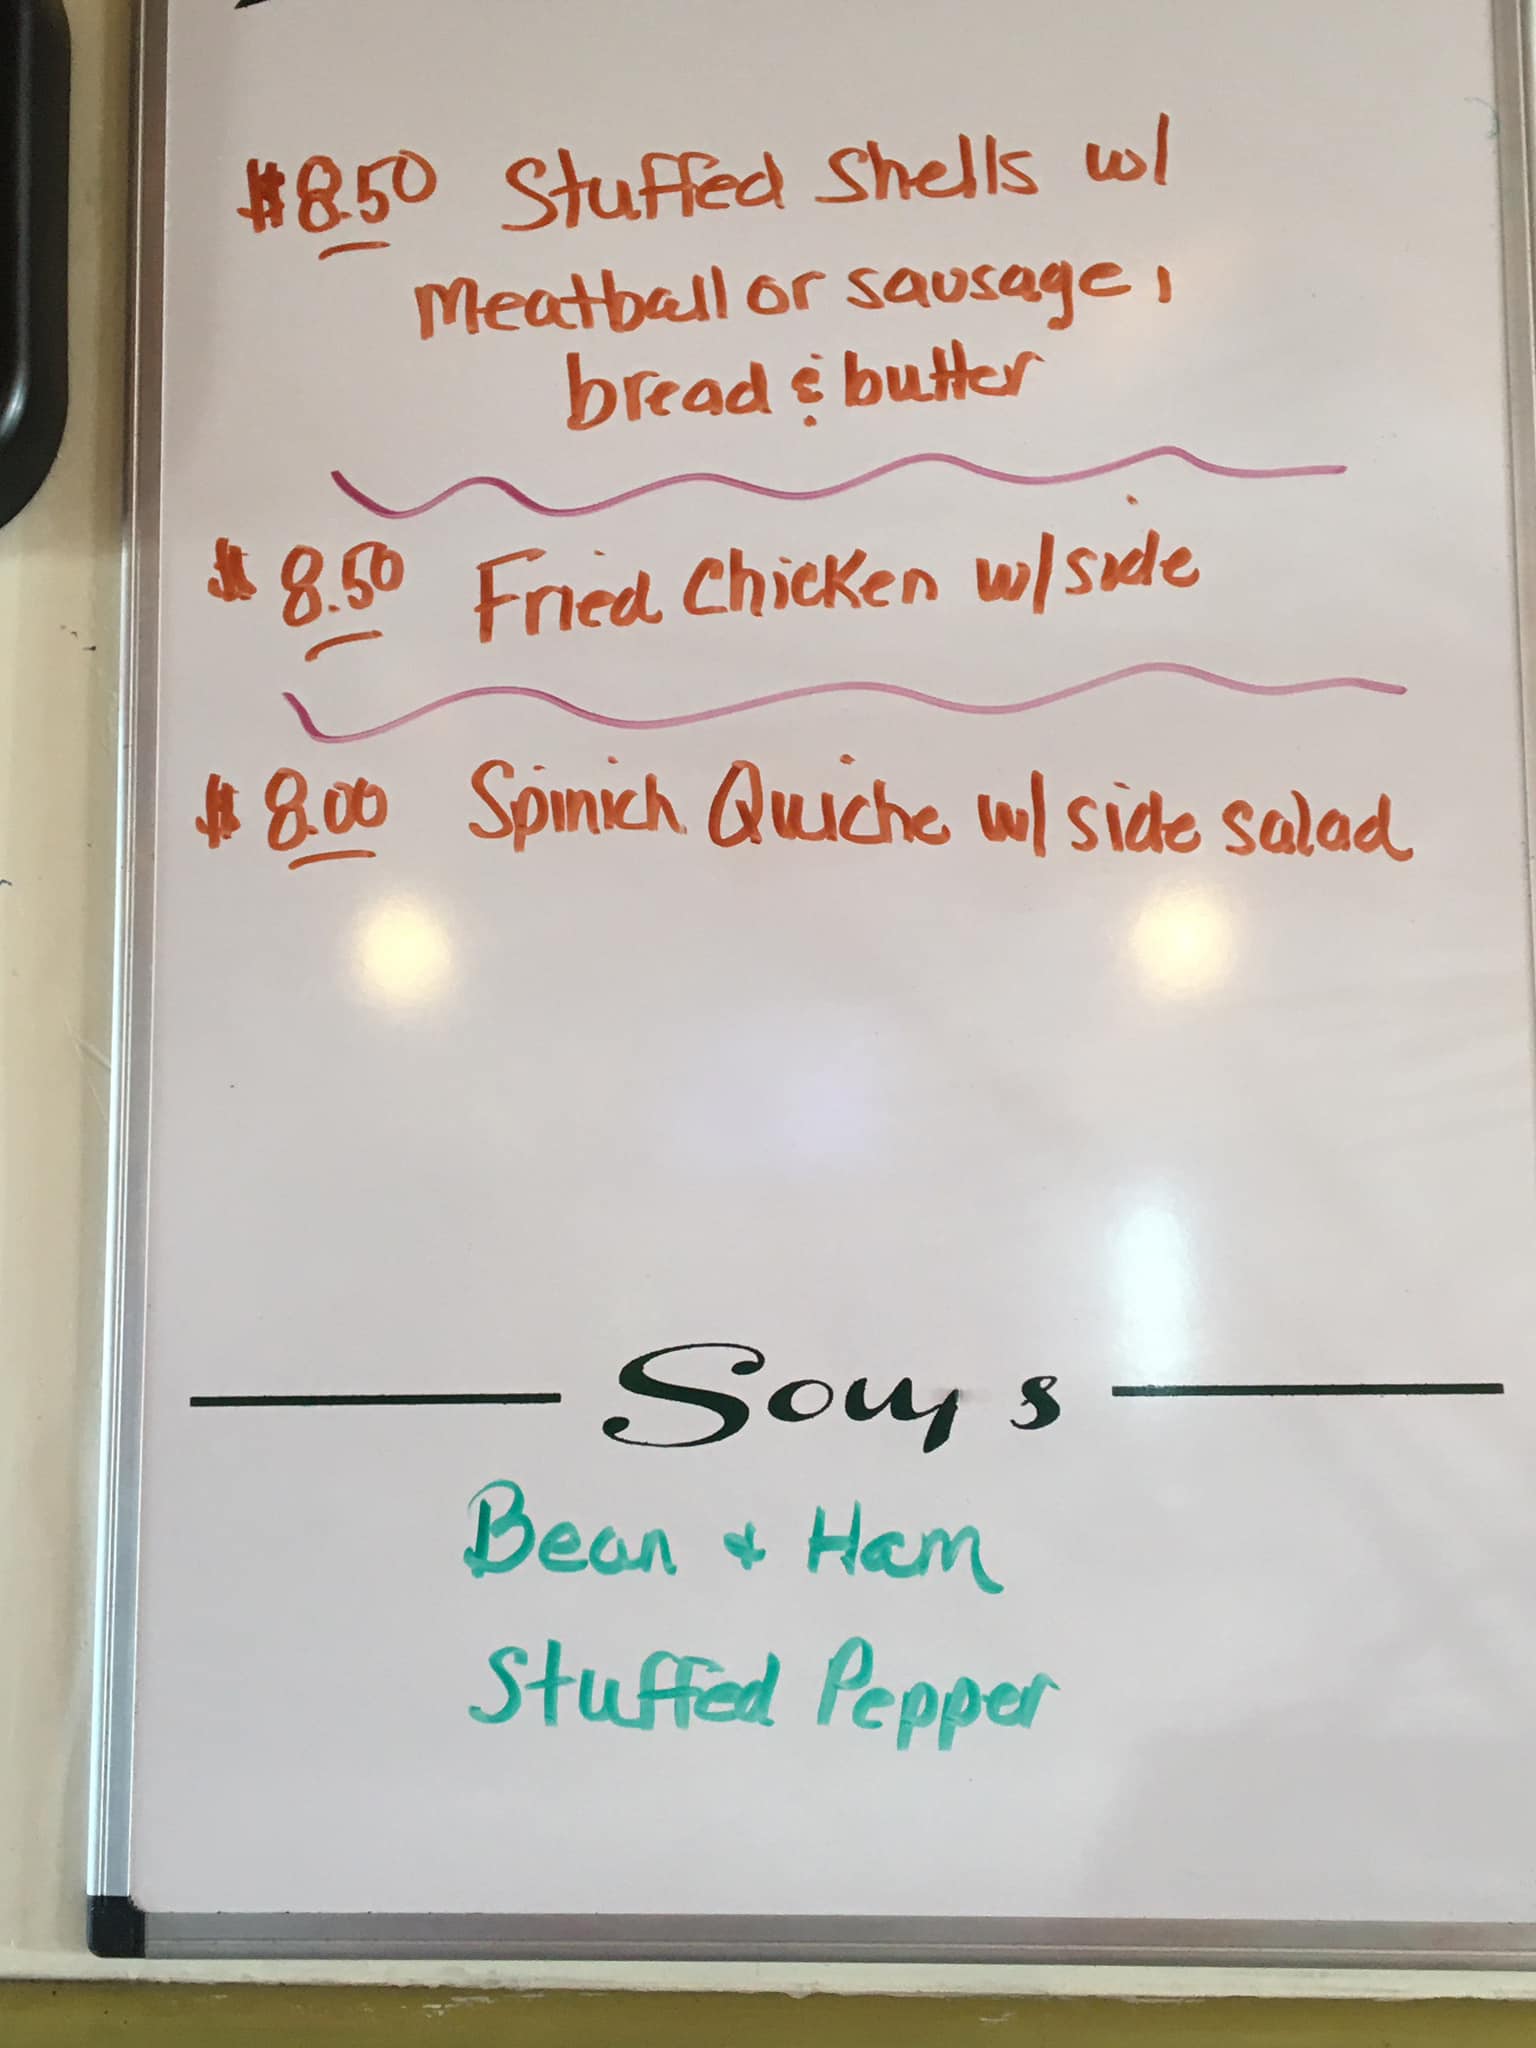 $8.50 Stuffed Shells w/
Meatball or sausage,
bread & butter
$8.50 Fried Chicken w/side
$8.00 Spinich Quiche w/ side salad
Soups
Bean + Ham
Stuffed Pepper